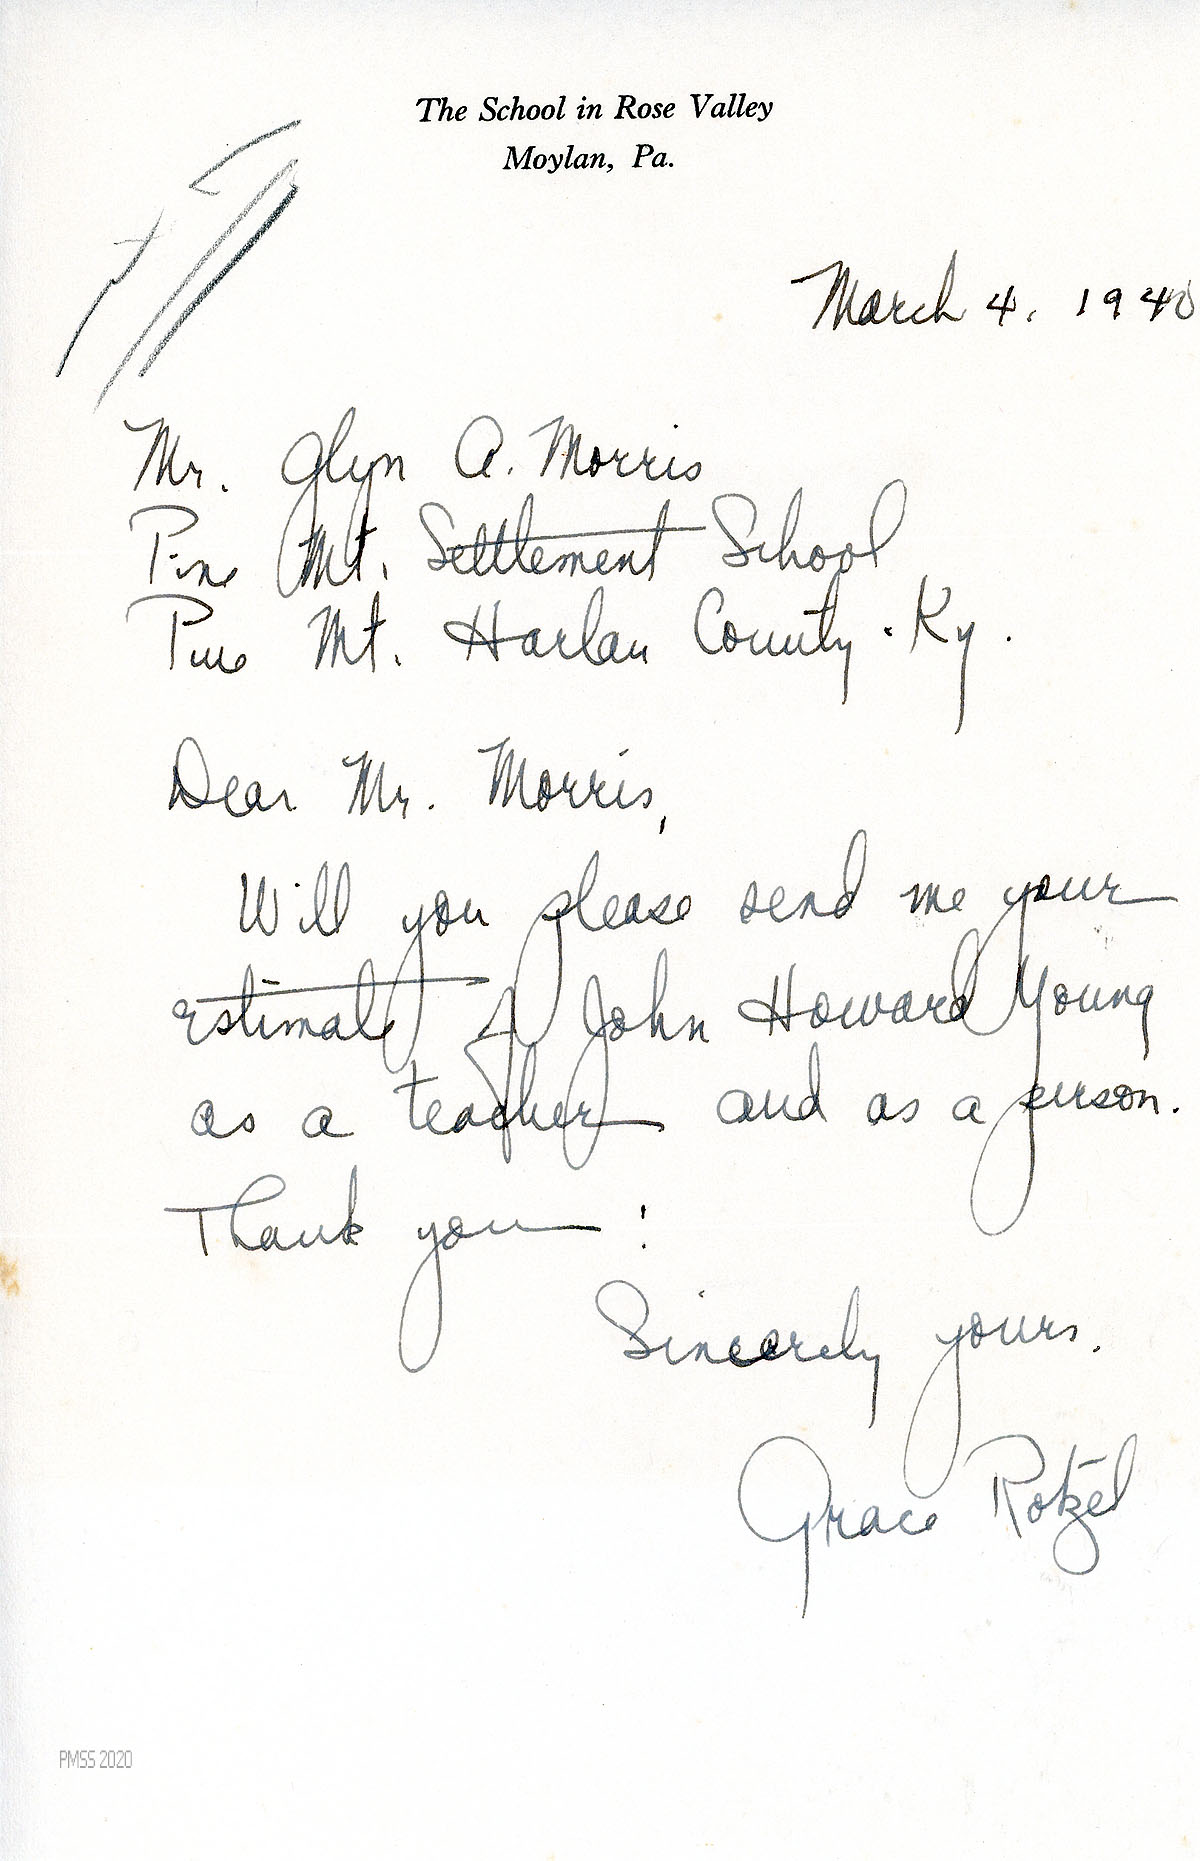 The School in Rose Valley
Moylan, Pa.
March 4, 1940
Mr. Glyn A. Morris
Pine Mt. Settlement School
Pine Mt. Harlan County. Ky.
Dear Mr. Morris,
Will you please send me your
estimate of John Howard Young
as a teacher and as a person.
Thank you!
Sincerely yours,
Grace Rotzel
PMSS 2020